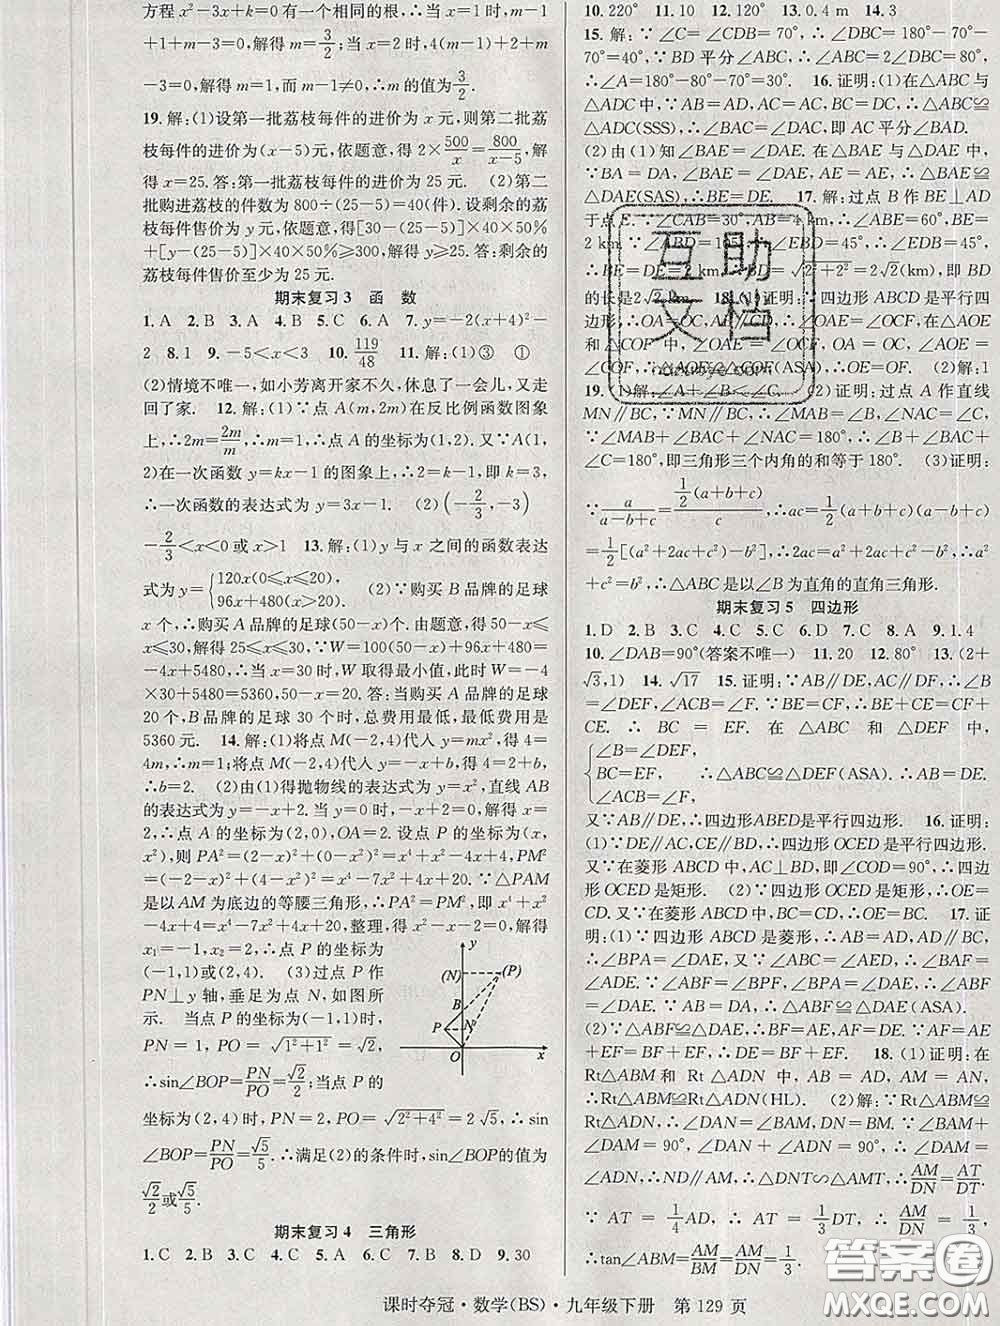 方程 x²−3x+k=0 有一个相同的根,∴当 x=1 时,m−1
+1+m−3=0,解得 m=3/2;当 x=2 时,4(m−1)+2+m
−3=0,解得 m=1,∴m 的值为 3/2.
19.解:(1)设第一批荔枝每件的进价为 x 元,则第二批荔
枝每件的进价为(x−5)元,依题意,得 2×500/x=800/(x−5),解
得 x=25.答:第一批荔枝每件的进价为 25 元. (2)第二
批购进荔枝的件数为 800÷(25−5)=40(件).设剩余的荔
枝每件售价为 y 元,依题意,得[30−(25−5)]×40×50%
+[y−(25−5)]×40×50%≥300,解得 y≥25.答:剩余的
荔枝每件售价至少为 25 元.
期末复习3 函 数
1.A 2.B 3.A 4.B 5.C 6.A 7.y=−2(x+4)²−
2 8.1 9.−5<x<3 10.119/48 11.解:(1)③ ①
(2)情境不唯一,如小芳离开家不久,休息了一会儿,又走
回了家. 12.解:(1)∵点 A(m,2m)在反比例函数图象
上,∴2m=2m/m,∴m=1,∴点 A 的坐标为(1,2).又∵A(1,
2)在一次函数 y=kx−1 的图象上,∴2=k−1,即 k=3,
∴一次函数的表达式为 y=3x−1. (2)(−2/3,−3)
−2/3<x<0 或 x>1 13.解:(1)y 与 x 之间的函数表达
式为 y={120x(0≤x≤20),
96x+480(x>20). (2)∵购买 B 品牌的足球
x 个,∴购买 A 品牌的足球(50−x)个.由题意,得 50−x
≤x≤30,解得 25≤x≤30,∴W=100(50−x)+96x+480=
−4x+5480,∴当 x=30 时,W 取得最小值,此时 W=−4
×30+5480=5360,50−x=20.答:当购买 A 品牌的足球
20 个,B 品牌的足球 30 个时,总费用最低,最低费用是
5360 元. 14.解:(1)将点 M(−2,4)代人 y=mx²,得 4=
4m,∴m=1;将点 M(−2,4)代人 y=−x+b,得 4=2+b,
∴b=2. (2)由(1)得抛物线的表达式为 y=x²,直线 AB
的表达式为 y=−x+2.当 y=0 时,−x+2=0,解得 x=
2,∴点 A 的坐标为(2,0),OA=2.设点 P 的坐标为(x,
x²),则 PA²=(2−x)²+(0−x²)²=x⁴+x²−4x+4,PM²
=(−2−x)²+(4−x²)²=x⁴−7x²+4x+20.∵△PAM
是以 AM 为底边的等腰三角形,∴PA²=PM²,即 x⁴+x²
−4x+4=x⁴−7x²+4x+20,整理,得 x²−x−2=0,解得
x₁=−1,x₂=2,∴点 P 的坐标为
(−1,1)或(2,4). (3)过点 P 作
PN⊥y 轴,垂足为点 N,如图所
示. 当点 P 的坐标为(−1,1)时,
PN=1,PO=√(1²+1²)=√2,
∴sin∠BOP=PN/PO=√2/2;当点 P 的
坐标为(2,4)时,PN=2,PO=√(2²+4²)=2√5,∴sin
∠BOP=PN/PO=√5/5.∴满足(2)的条件时,sin∠BOP 的值为
√2/2 或 √5/5.
y
(N) (P)
B
P N
O x
期末复习4 三角形
1.C 2.B 3.C 4.A 5.A 6.C 7.B 8.D 9.30
10.220° 11.10 12.120° 13.0.4 m 14.3
15.解:∵∠C=∠CDB=70°,∴∠DBC=180°−70°−
70°=40°,∵BD 平分∠ABC,∴∠ABC=2∠DBC=80°,
∴∠A=180°−80°−70°=30°. 16.证明:(1)在△ABC 与
△ADC 中,∵AB=AD,AC=AC,BC=DC,∴△ABC≌
△ADC(SSS),∴∠BAC=∠DAC,即 AC 平分∠BAD.
(2)由(1)知∠BAE=∠DAE.在△BAE 与△DAE 中,
∵BA=DA,∠BAE=∠DAE,AE=AE,∴△BAE≌
△DAE(SAS),∴BE=DE. 17.解:过点 B 作 BE⊥AD
于点 E.∵∠CAB=30°,AB=4 km,∴∠ABE=60°,BE=
2 km.∵∠ABD=105°,∴∠EBD=45°,∴∠EDB=45°,
∴BE=DE=2 km,∴BD=√(2²+2²)=2√2(km),即 BD
的长是 2√2 km. 18.(1)证明:∵四边形 ABCD 是平行四边
形,∴OA=OC,AB∥CD,∴∠OAE=∠OCF,在△AOE
和△COF 中,∵∠OAE=∠OCF,OA=OC,∠AOE=
∠COF,∴△AOE≌△COF(ASA),∴OE=OF. (2)解:1
19.(1)解:∠A+∠B+∠C=180° (2)证明:过点 A 作直线
MN∥BC,∵MN∥BC,∴∠MAB=∠B,∠NAC=∠C,
∵∠MAB+∠BAC+∠NAC=180°,∴∠BAC+∠B+
∠C=180°,即三角形三个内角的和等于 180°. (3)证明:
∵a/(a−b+c)=½(a+b+c)/c,∴ac=½(a+b+c)(a−b+c)
=½[(a²+2ac+c²)−b²],∴2ac=a²+2ac+c²−b²,∴a²
+c²=b²,∴△ABC 是以∠B 为直角的直角三角形.
期末复习5 四边形
1.D 2.B 3.C 4.C 5.C 6.D 7.C 8.A 9.1.4
10.∠DAB=90°(答案不唯一) 11.20 12.80° 13.(2+
√3,1) 14.√17 15.证明:∵AB∥DE,AC∥DF,∴∠B
=∠DEF,∠ACB=∠F.∵BE=CF,∴BE+CE=CF+
CE. ∴ BC = EF. 在 △ABC 和 △DEF 中,
{∠B=∠DEF,
BC=EF, ∴△ABC≌△DEF(ASA).∴AB=DE.
∠ACB=∠F,
又∵AB∥DE,∴四边形ABED是平行四边形. 16.证明:
(1)∵DE∥AC,CE∥BD,∴四边形 OCED 是平行四边形.
又∵在菱形 ABCD 中,AC⊥BD,即∠COD=90°,∴四边
形 OCED 是矩形. (2)∵四边形 OCED 是矩形,∴OE=
CD.又∵在菱形 ABCD 中,BC=CD,∴OE=BC. 17.证
明:(1)∵四边形 ABCD 是菱形,∴AB=AD,AD∥BC,
∴∠BPA=∠DAE,∵∠ABC=∠AED,∴∠BAF=
∠ADE.∵∠ABF=∠BPF,∠BPA=∠DAE,∴∠ABF
=∠DAE.又∵AB=DA,∴△ABF≌△DAE(ASA).
(2)∵△ABF≌△DAE,∴BF=AE,AF=DE.∵AF=AE
+EF=BF+EF,∴DE=BF+EF. 18.(1)证明:在
Rt△ABM 和 Rt△ADN 中,AB=AD,AM=AN,
∴Rt△ABM≌Rt△ADN(HL). (2)解:∵Rt△ABM≌
Rt△ADN,∴∠BAM=∠DAN,DN=BM.∵∠BAM+
∠DAM=90°,∴∠DAN+∠ADN=90°,∴∠DAM=
∠ADN,∴ND∥AM,∴△DNT∽△AMT,∴AM/DN=AT/DT.
∵AT=¼AD,∴AT=⅓DT,∴AM/DN=⅓,
∴tan∠ABM=AM/BM=AM/DN=⅓.
互助
文档
答案圈
课时夺冠·数学(BS)·九年级下册 第 129 页